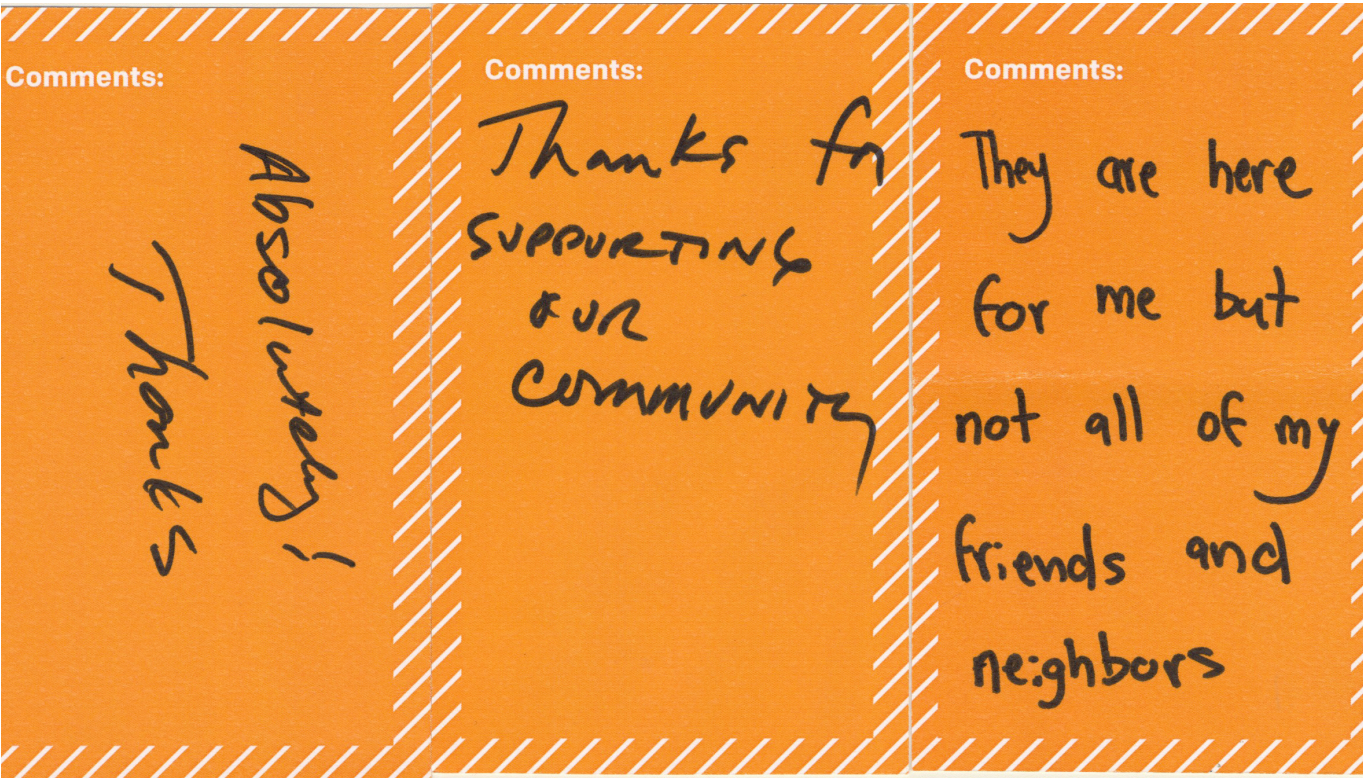 Comments:
Absolutely!
Thanks
Comments:
Thanks for
SUPPORTING
OUR
COMMUNITY
Comments:
They are here
for me but
not all of my
friends and
neighbors